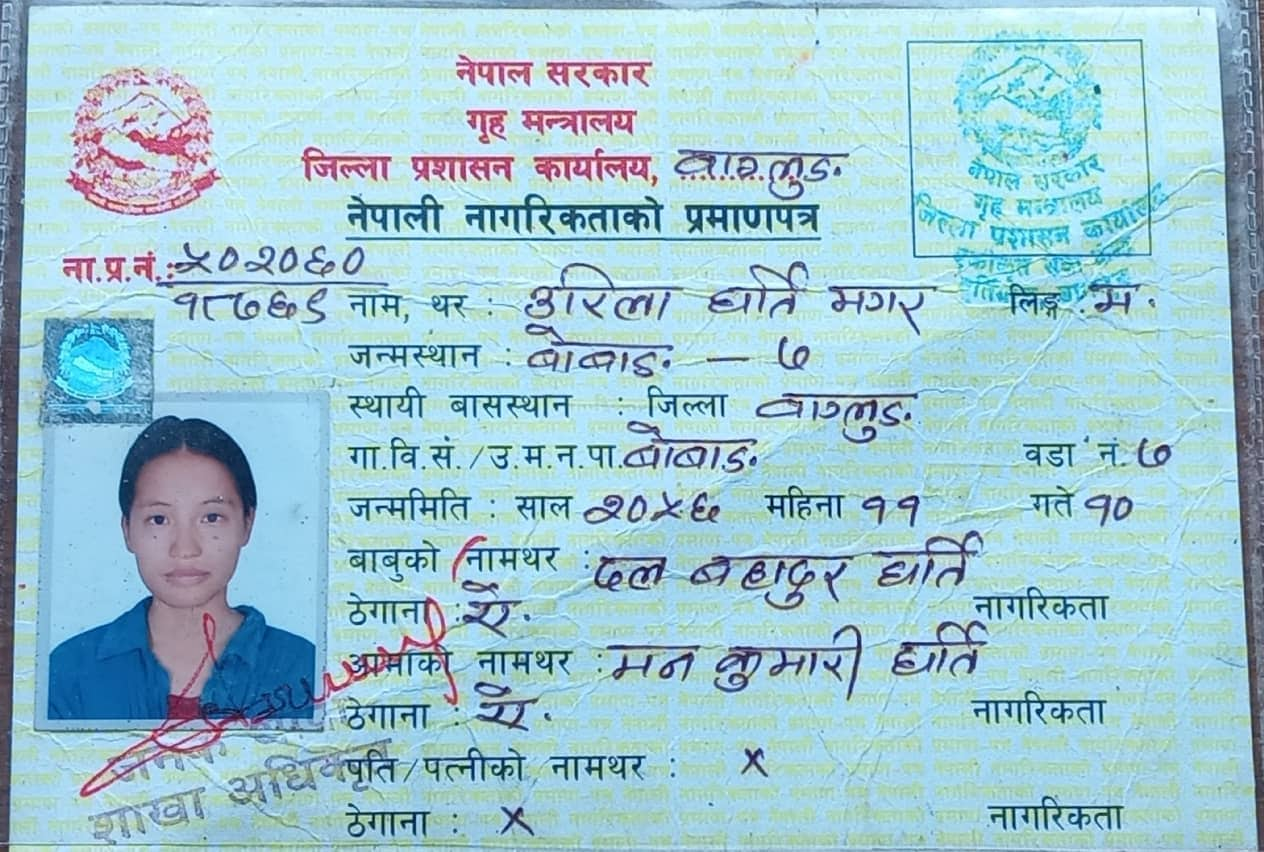 नेपाल सरकार
गृह मन्त्रालय
जिल्ला प्रशासन कार्यालय, बागलुङ
नेपाली नागरिकताको प्रमाणपत्र
नेपाल सरकार
गृह मन्त्रालय
जिल्ला प्रशासन कार्यालय
ना.प्र.नं.: ५०२०६०
१८७६९
नाम, थर : उरिला घर्ति मगर लिङ्ग : म.
जन्मस्थान : बोबाङ - ७
स्थायी बासस्थान : जिल्ला बाग्लुङ
गा.वि.सं./उ.म.न.पा. बोबाङ वडा नं. ७
जन्ममिति : साल २०५६ महिना ११ गते १०
बाबुको नामथर : दल बहादुर घर्ति
ठेगाना : ऐ. नागरिकता
आमाको नामथर : मन कुमारी घर्ति
ठेगाना : ऐ. नागरिकता
पति/पत्नीको नामथर : x
ठेगाना : x नागरिकता
शाखा अधिकृत